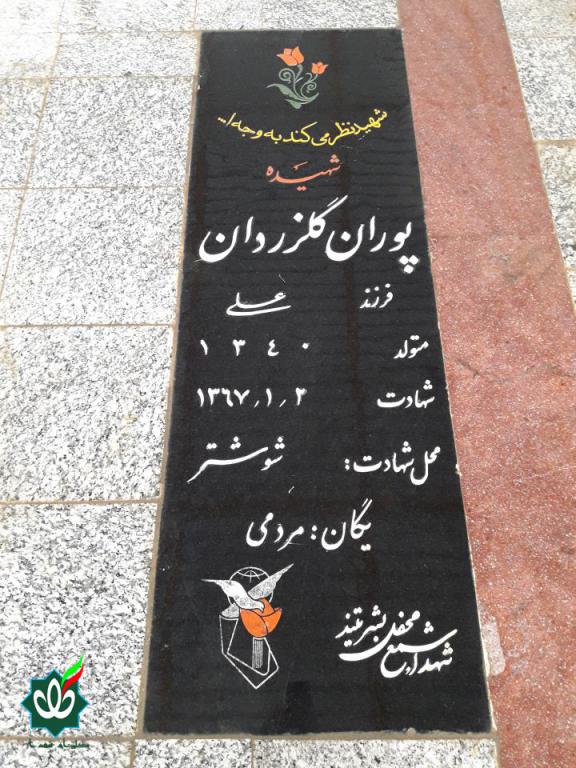 شهید نظر می کند به وجه ا...
شهیده
پوران گلزردان
فرزند علی
متولد ۱۳٤۰
شهادت ۱۳٦۷٫۱٫۲
محل شهادت: شوشتر
یگان: مردمی
شهدا شمع محفل بشریتند